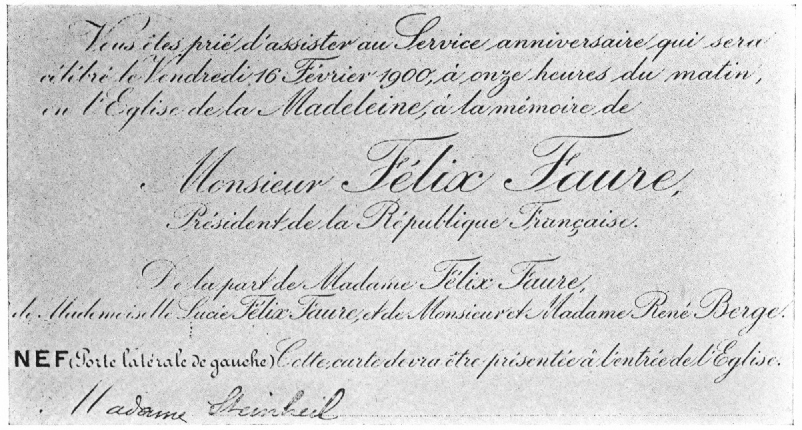 Vous êtes prié d'assister au Service anniversaire qui sera
célébré le Vendredi 16 Février 1900, à onze heures du matin,
en l'Eglise de la Madeleine, à la mémoire de
Monsieur Félix Faure,
Président de la République Française.
De la part de Madame Félix Faure,
de Mademoiselle Lucie Félix Faure, et de Monsieur et Madame René Berge.
NEF (Porte latérale de gauche) Cette carte devra être présentée à l'entrée de l'Eglise.
Madame Steinheil